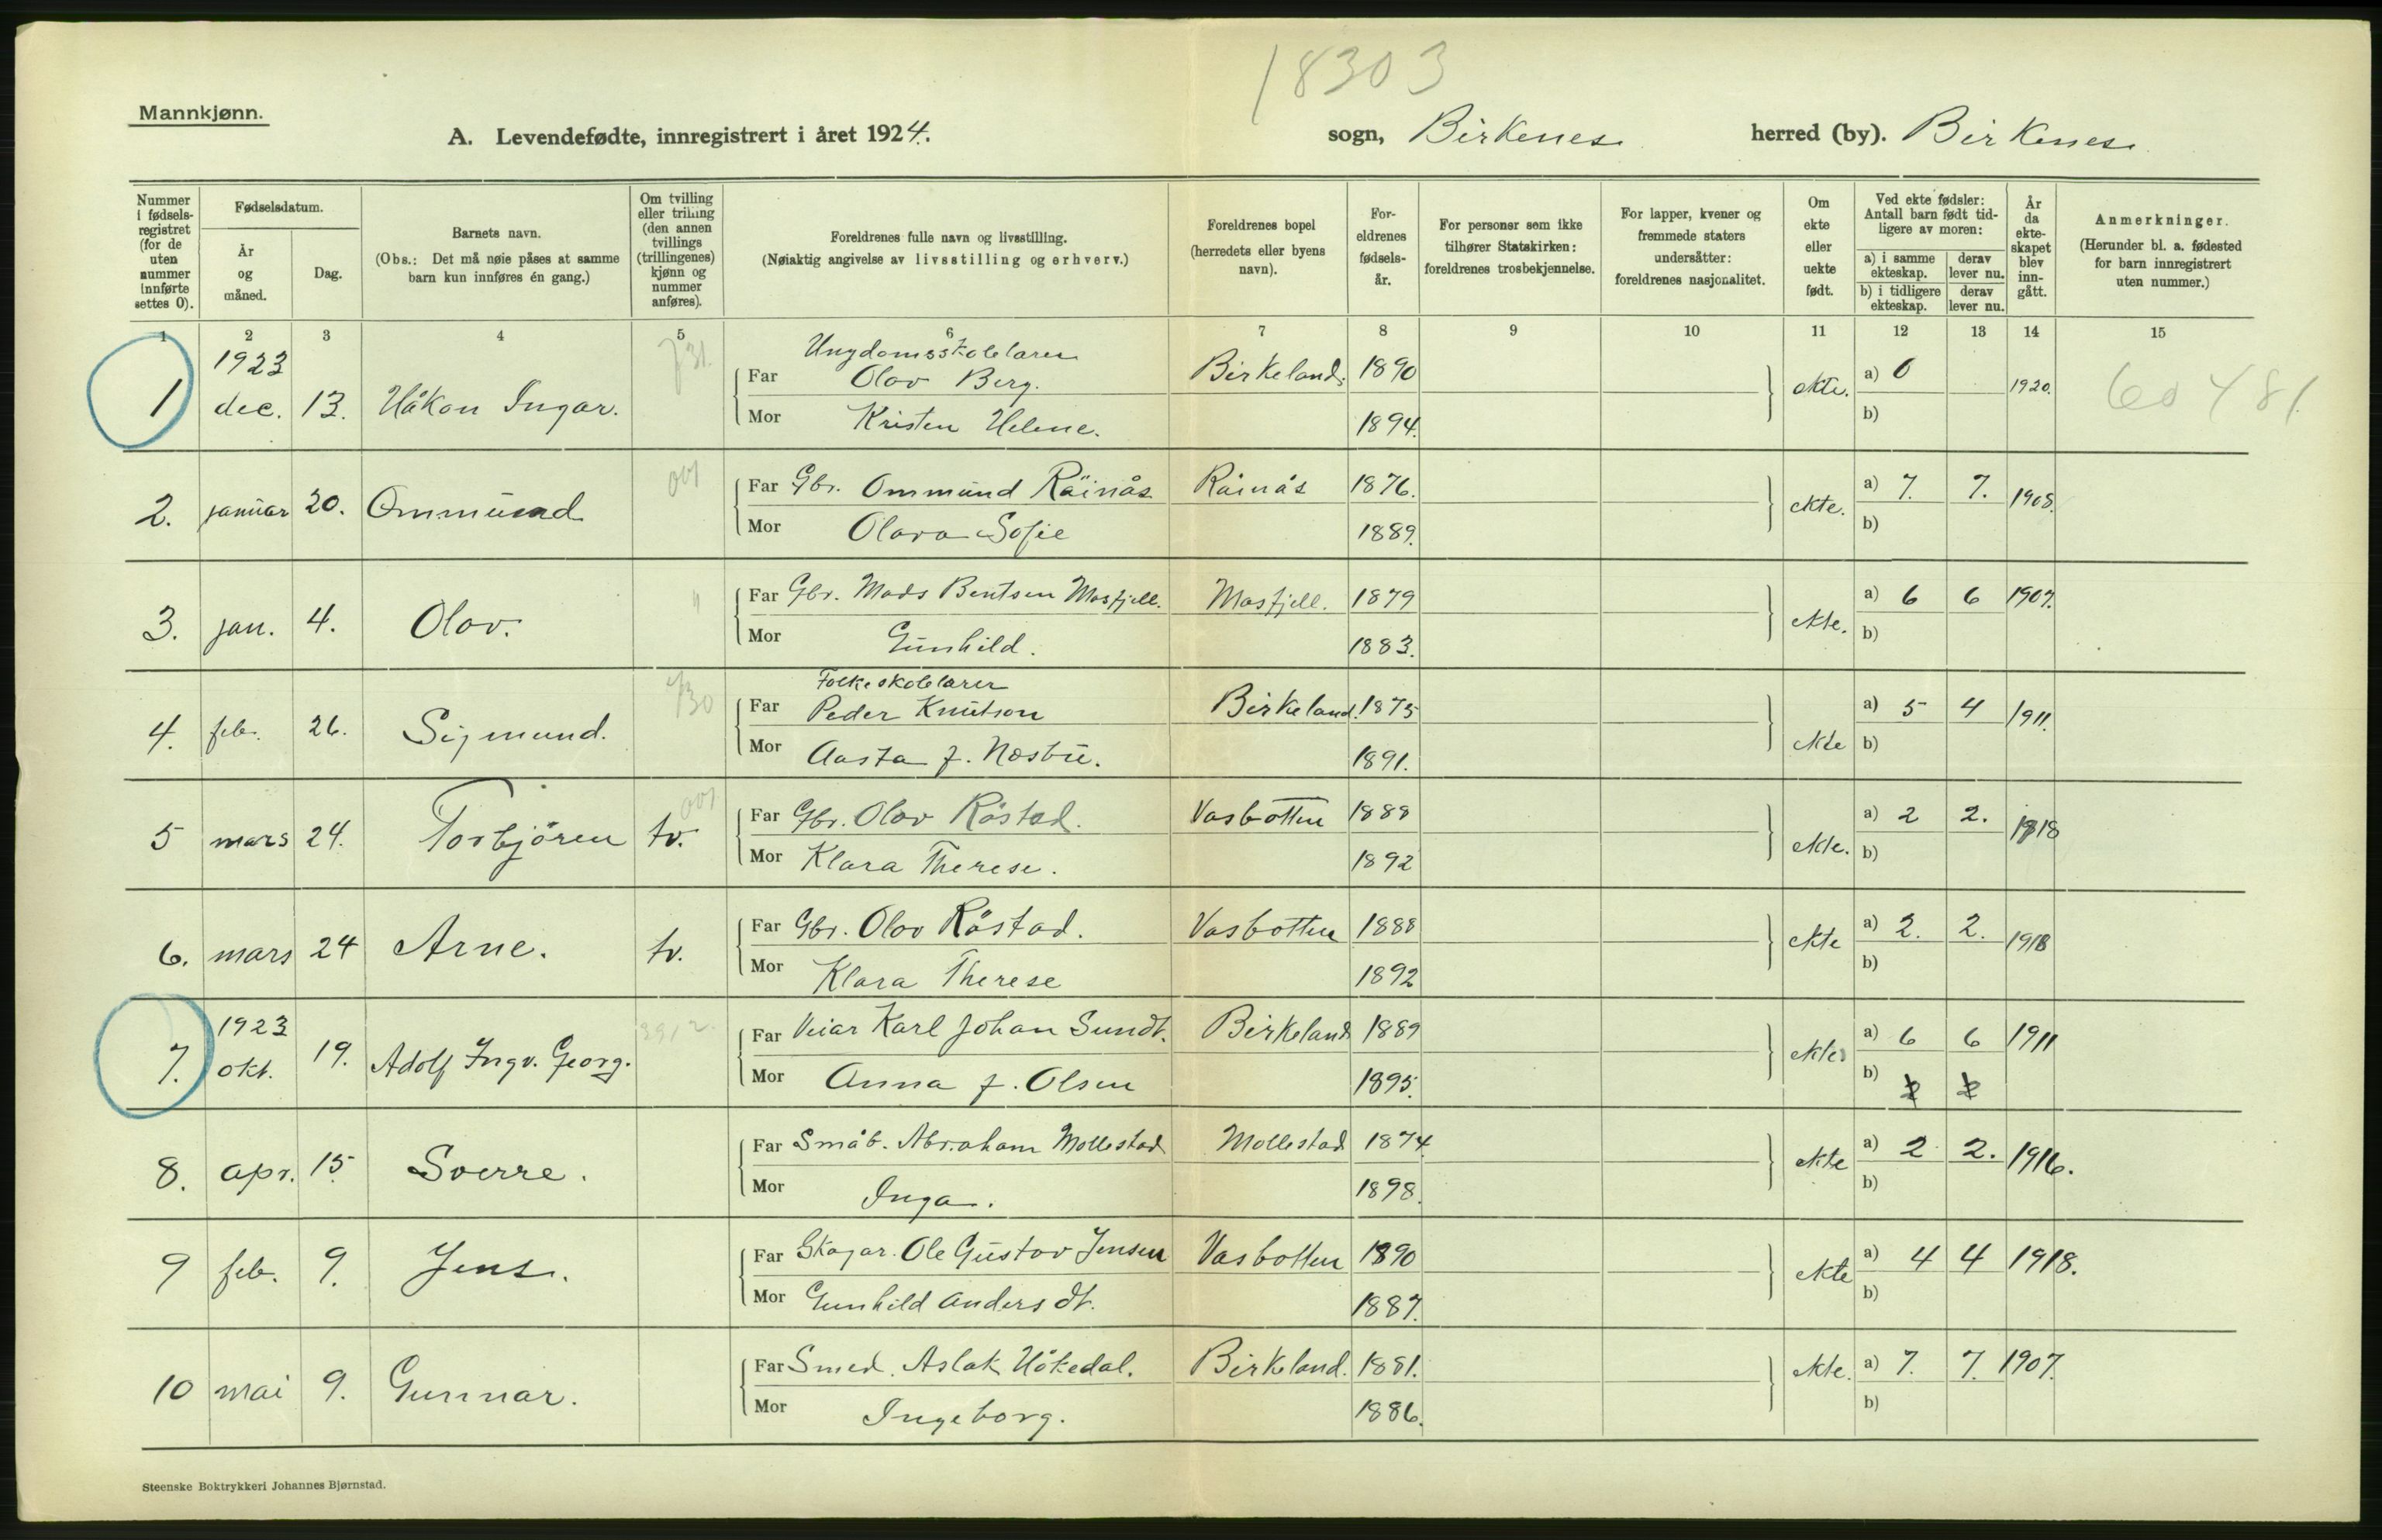 18303
Mannkjønn.
A. Levendefødte, innregistrert i året 1924. sogn, Birkenes. herred (by). Birkenes.
Nummer i fødsels-registret (for de uten nummer innførte settes 0).
Fødselsdatum.
År og måned.
Dag.
Barnets navn.
(Obs.: Det må nøie påses at samme barn kun innføres én gang.)
Om tvilling eller trilling (den annen tvillings (trillingenes) kjønn og nummer anføres).
Foreldrenes fulle navn og livsstilling.
(Nøiaktig angivelse av livsstilling og erhverv.)
Foreldrenes bopel (herredets eller byens navn).
For-eldrenes fødsels-år.
For personer som ikke tilhører Statskirken: foreldrenes trosbekjennelse.
For lapper, kvener og fremmede staters undersåtter: foreldrenes nasjonalitet.
Om ekte eller uekte født.
Ved ekte fødsler: Antall barn født tid-ligere av moren:
a) i samme ekteskap. derav lever nu.
b) i tidligere ekteskap. derav lever nu.
År da ekte-skapet blev inn-gått.
Anmerkninger.
(Herunder bl. a. fødested for barn innregistrert uten nummer.)
1 2 3 4 5 6 7 8 9 10 11 12 13 14 15
1923 Ungdomsskolelærer
1 dec. 13. Håkon Ingar. Far Olav Berg. Birkeland. 1890 ekte. a) 0 1920. 60481.
Mor Kristen Helene. 1894. b)
2. januar 20. Ommund 001 Far Gbr. Ommund Råinås Råinås 1876. ekte. a) 7. 7. 1908.
Mor Olava Sofie 1889. b)
3. jan. 4. Olav. " Far Gbr. Mads Bentsen Mosfjell. Mosfjell. 1879 ekte. a) 6 6 1907.
Mor Gunhild. 1883. b)
Folkeskolelærer
4. feb. 26. Sigmund. 730 Far Peder Knutson Birkeland. 1875 ekte a) 5 4 1911.
Mor Aasta f. Nosbu. 1891. b)
5 mars 24. Torbjören tv. 001 Far Gbr. Olav Röstad. Vasbotten 1888 ekte. a) 2 2. 1918
Mor Klara Therese. 1892 b)
6. mars 24 Arne. tv. Far Gbr. Olav Röstad. Vasbotten 1888 ekte a) 2. 2. 1918
Mor Klara Therese 1892 b)
1923
7. okt. 19. Adolf Ingv. Georg. Far Veiar Karl Johan Sundt. Birkeland 1889 ekte a) 6 6 1911
Mor Anna f. Olsen 1895. b)
8. apr. 15. Sverre. Far Småb. Abraham Mollestad Mollestad 1874. ekte a) 2 2. 1916.
Mor Inga. 1898. b)
9 feb. 9. Jens. Far Skogar. Ole Gustav Jensen Vasbotten 1890 ekte a) 4 4 1918.
Mor Gunhild Andersdt. 1887. b)
10 mai 9. Gunnar. Far Smed. Aslak Håkedal. Birkeland. 1881. ekte. a) 7. 7. 1907.
Mor Ingeborg. 1886. b)
Steenske Boktrykkeri Johannes Bjørnstad.